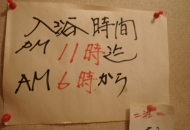 入浴時間
PM 11時迄
AM 6時から